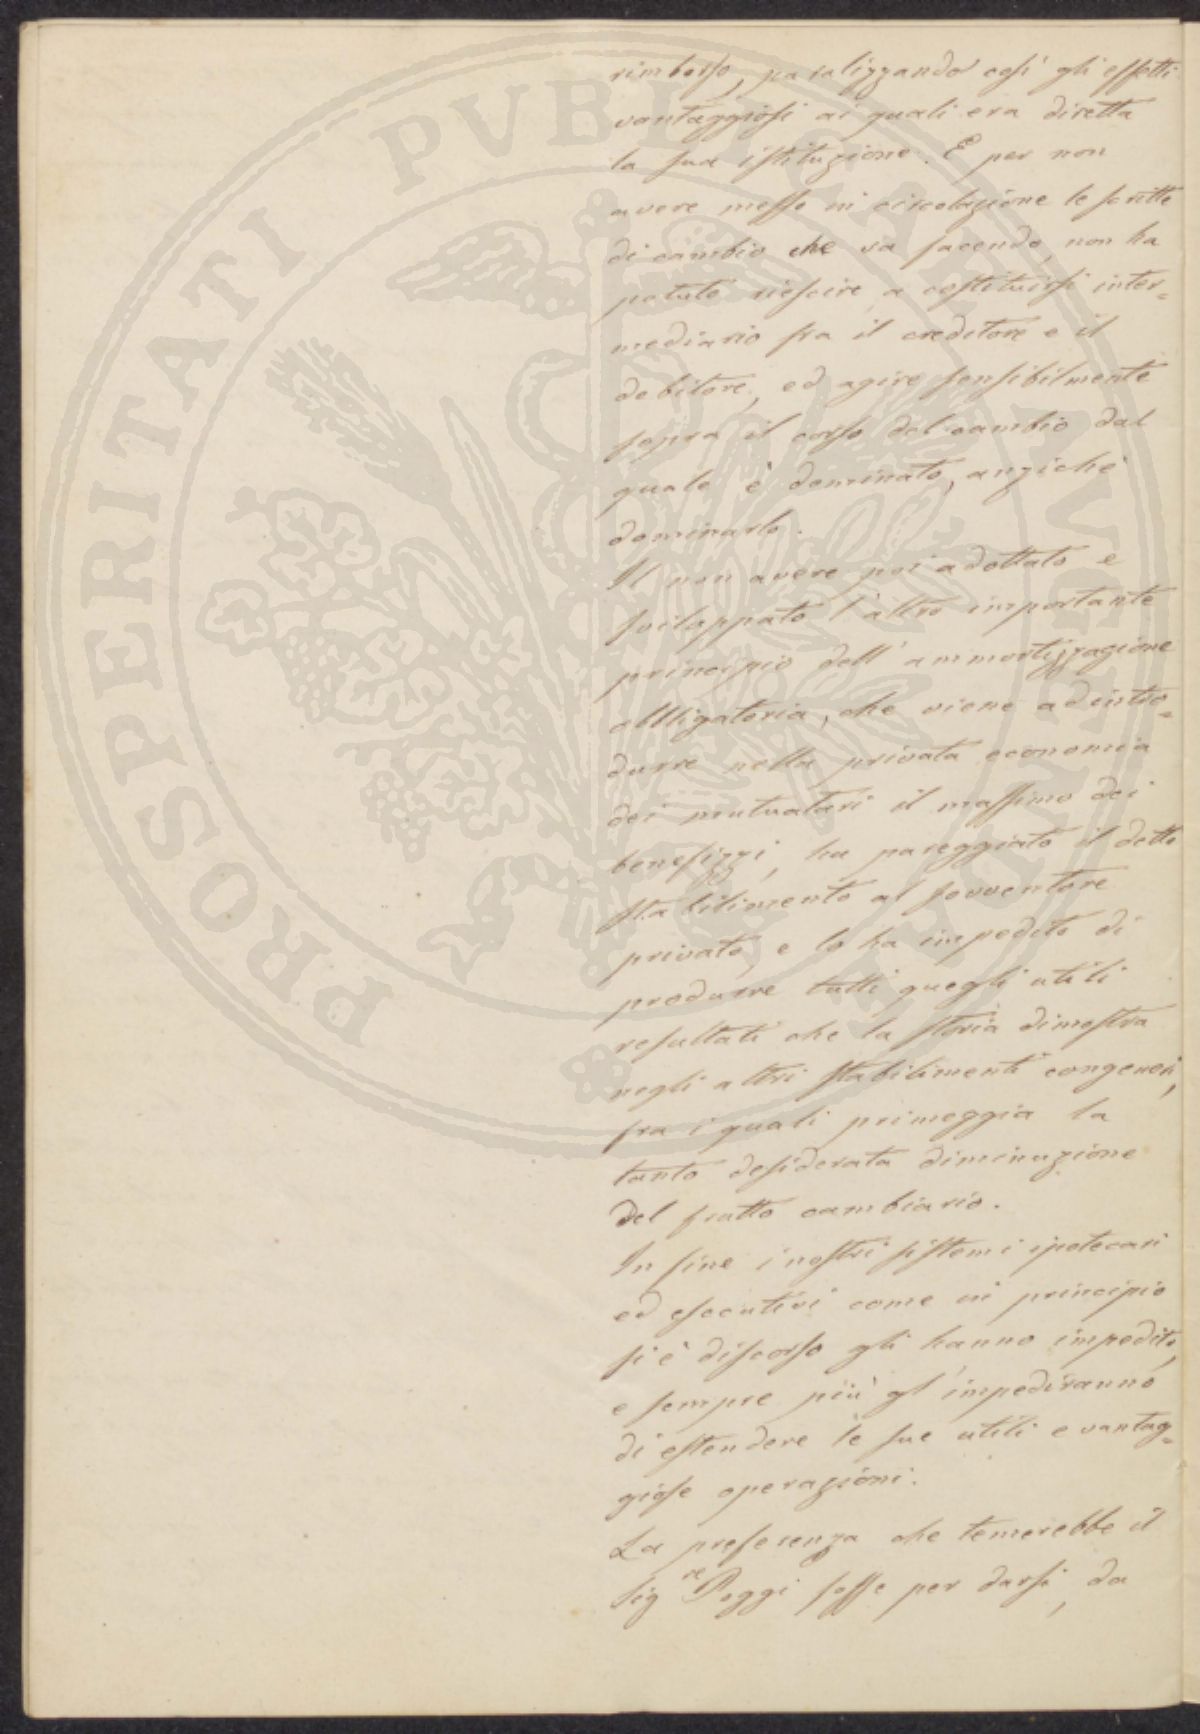 rimborso, paralizzando così gli effetti
vantaggiosi ai quali era diretta
la sua istituzione. E per non
avere messo in circolazione le scritte
di cambio che va facendo, non ha
potuto riescire a costituirsi inter=
mediario fra il creditore e il
debitore, ed agire sensibilmente
sopra il corso del cambio dal
quale è dominato, anziché
dominarlo.
Il non avere poi adottato e
sviluppato l'altro importante
principio dell'ammortizzazione
obbligatoria, che viene ad intro=
durre nella privata economia
dei mutuatari il massimo dei
benefizzi, ha pareggiato il detto
stabilimento al sovventore
privato, e lo ha impedito di
produrre tutti quegli utili
resultati che la storia dimostra
negli altri stabilimenti congeneri,
fra i quali primeggia la
tanto desiderata diminuzione
del frutto cambiario.
In fine i nostri sistemi ipotecari
ed esecutivi come in principio
si è discorso gli hanno impedito,
e sempre più gl'impediranno
di estendere le sue utili e vantag=
giose operazioni.
La preferenza che temerebbe il
Sig.re Poggi fosse per darsi, da
PROSPERITATI PVBLICAE AVGENDAE